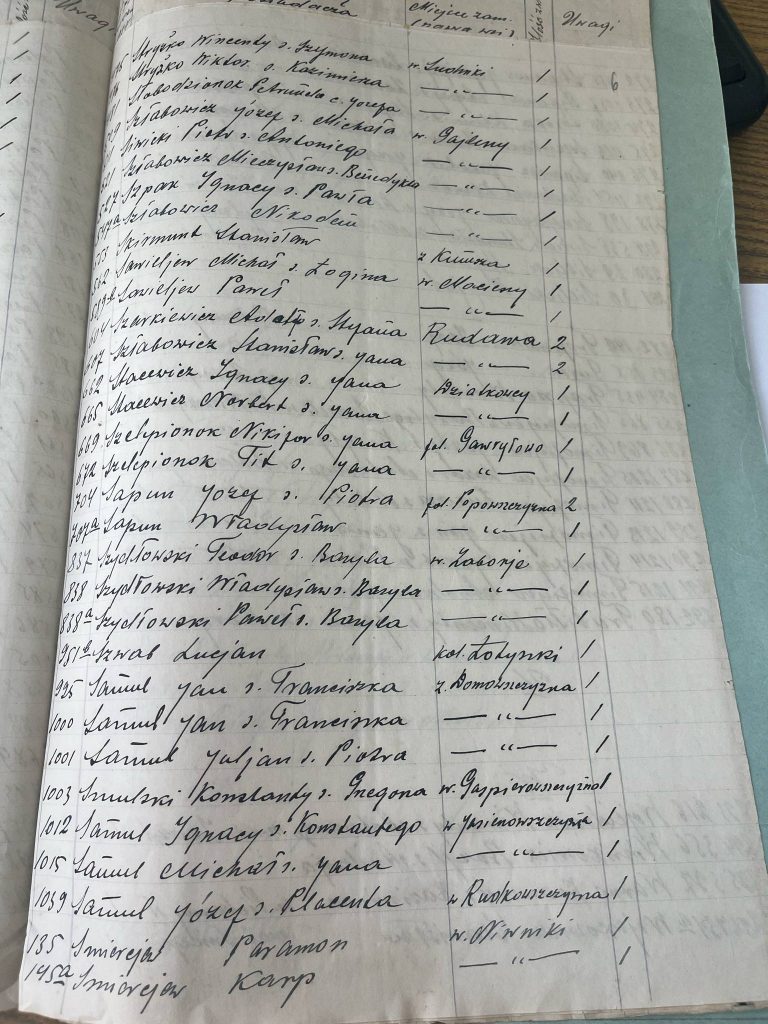 Uwagi
Miejsce zam. Uwagi
(nazwa wsi)
6
Stryżko Wincenty s. Szymona w. Ludniki 1
Stryżko Wiktor s. Kazimierza — „ — 1
Słobodzionok Petrunela c. Józefa — „ — 1
Szłabowicz Józef s. Michała w. Gajleny 1
Siwicki Piotr s. Antoniego — „ — 1
Szłabowicz Mieczysław s. Benedykta — „ — 1
Szpak Ignacy s. Pawła — „ — 1
Szłabowicz Nikodem — „ — 1
Skirmunt Stanisław z 1
Sawieljew Michał s. Łogina w. Macieny 1
Sawieljew Paweł — „ — 1
Szurkiewicz Adolf s. Stefana Rudawa 2
607 Szłabowicz Stanisław s. Jana — „ — 2
662 Stacewicz Ignacy s. Jana Działkowcy 1
665 Stacewicz Norbert s. Jana — „ — 1
669 Szelepionok Nikifor s. Jana fol. Gawryłowo 1
672 Szelepionok Tit s. Jana — „ — 1
704 Sapun Józef s. Piotra fol. Popowszczyzna 2
707a Sapun Władysław — „ — 1
837 Szydłowski Teodor s. Bazyla w. Zaborje 1
838 Szydłowski Władysław s. Bazyla — „ — 1
838a Szydłowski Paweł s. Bazyla — „ — 1
981b Szwab Lucjan kol. Łotyszki 1
995 Samul Jan s. Franciszka z. Domowszczyzna 1
1000 Samul Jan s. Franciszka — „ — 1
1001 Samul Juljan s. Piotra — „ — 1
1003 Smulski Konstanty s. Gregora w. Gaspierowszczyzna 1
1012 Samul Ignacy s. Konstantego w Jasienowszczyzna 1
1015 Samul Michał s. Jana — „ — 1
1039 Samul Józef s. Placenta w Rudkowszczyzna 1
135 Smierejew Paramon w. Niwniki 1
145a Smierejew Karp — „ — 1